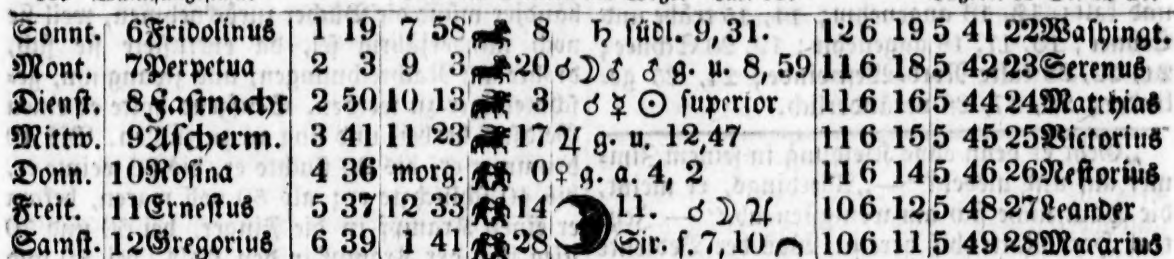 Sonnt. 6 Fridolinus 1 19 7 58 ♌ 8 ♄ südl. 9, 31. 12 6 19 5 41 22 Washingt.
Mont. 7 Perpetua 2 3 9 3 ♌ 20 ☌ ☽ ♂ ♂ g. u. 8, 59 11 6 18 5 42 23 Serenus
Dienst. 8 Fastnacht 2 50 10 13 3 ☌ ☿ ☉ superior 11 6 16 5 44 24 Matthias
Mittw. 9 Ascherm. 3 41 11 23 17 ♃ g. u. 12,47 11 6 15 5 45 25 Victorius
Donn. 10 Rosina 4 36 morg. 0 ♀ g. a. 4, 2 11 6 14 5 46 26 Nestorius
Freit. 11 Ernestus 5 37 12 33 14 11. ☌ ☽ ♃ 10 6 12 5 48 27 Leander
Samst. 12 Gregorius 6 39 1 41 28 Sir. s. 7, 10 10 6 11 5 49 28 Macarius